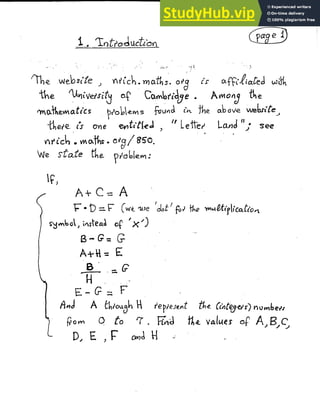 StudyHub.vip
Experienced writers
On-time delivery
100% plagiarism free
page 1
1. Introduction
The website, nrich.maths.org is affiliated with
the University of Cambridge. Among the
mathematics problems found in the above website,
there is one entitled, "Letter Land"; see
nrich.maths.org/850.
We state the problem:
If,
A + C = A
F · D = F (we use 'dot' for the multiplication
symbol, instead of 'x')
B - G = G
A + H = E
B / H = G
E - G = F
And A through H represent the (integers) numbers
from 0 to 7. Find the values of A, B, C,
D, E, F and H.